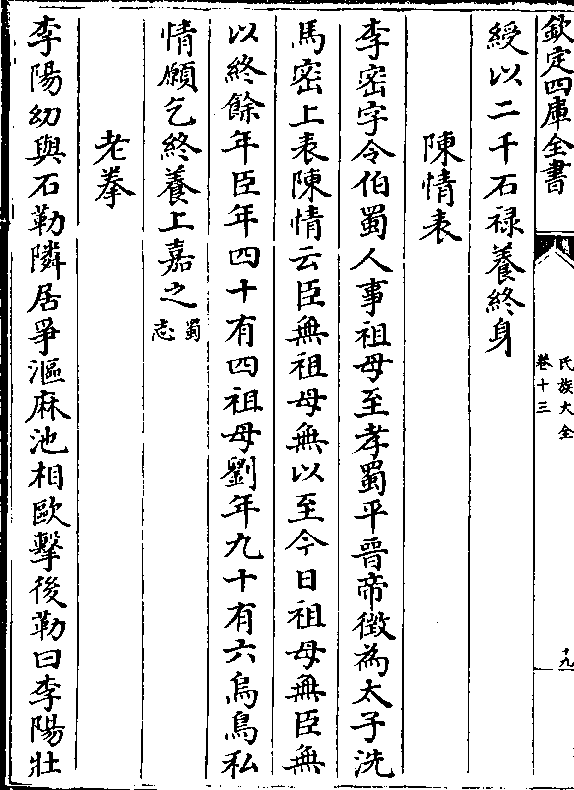 欽定四庫全書
氏族大全
卷十三
十九
綬以二千石禄養終身
陳情表
李密字令伯蜀人事祖母至孝蜀平晉帝徵為太子洗
馬密上表陳情云臣無祖母無以至今日祖母無臣無
以終餘年臣年四十有四祖母劉年九十有六烏鳥私
情願乞終養上嘉之蜀志
老拳
李陽幼與石勒隣居爭漚麻池相歐擊後勒曰李陽壯